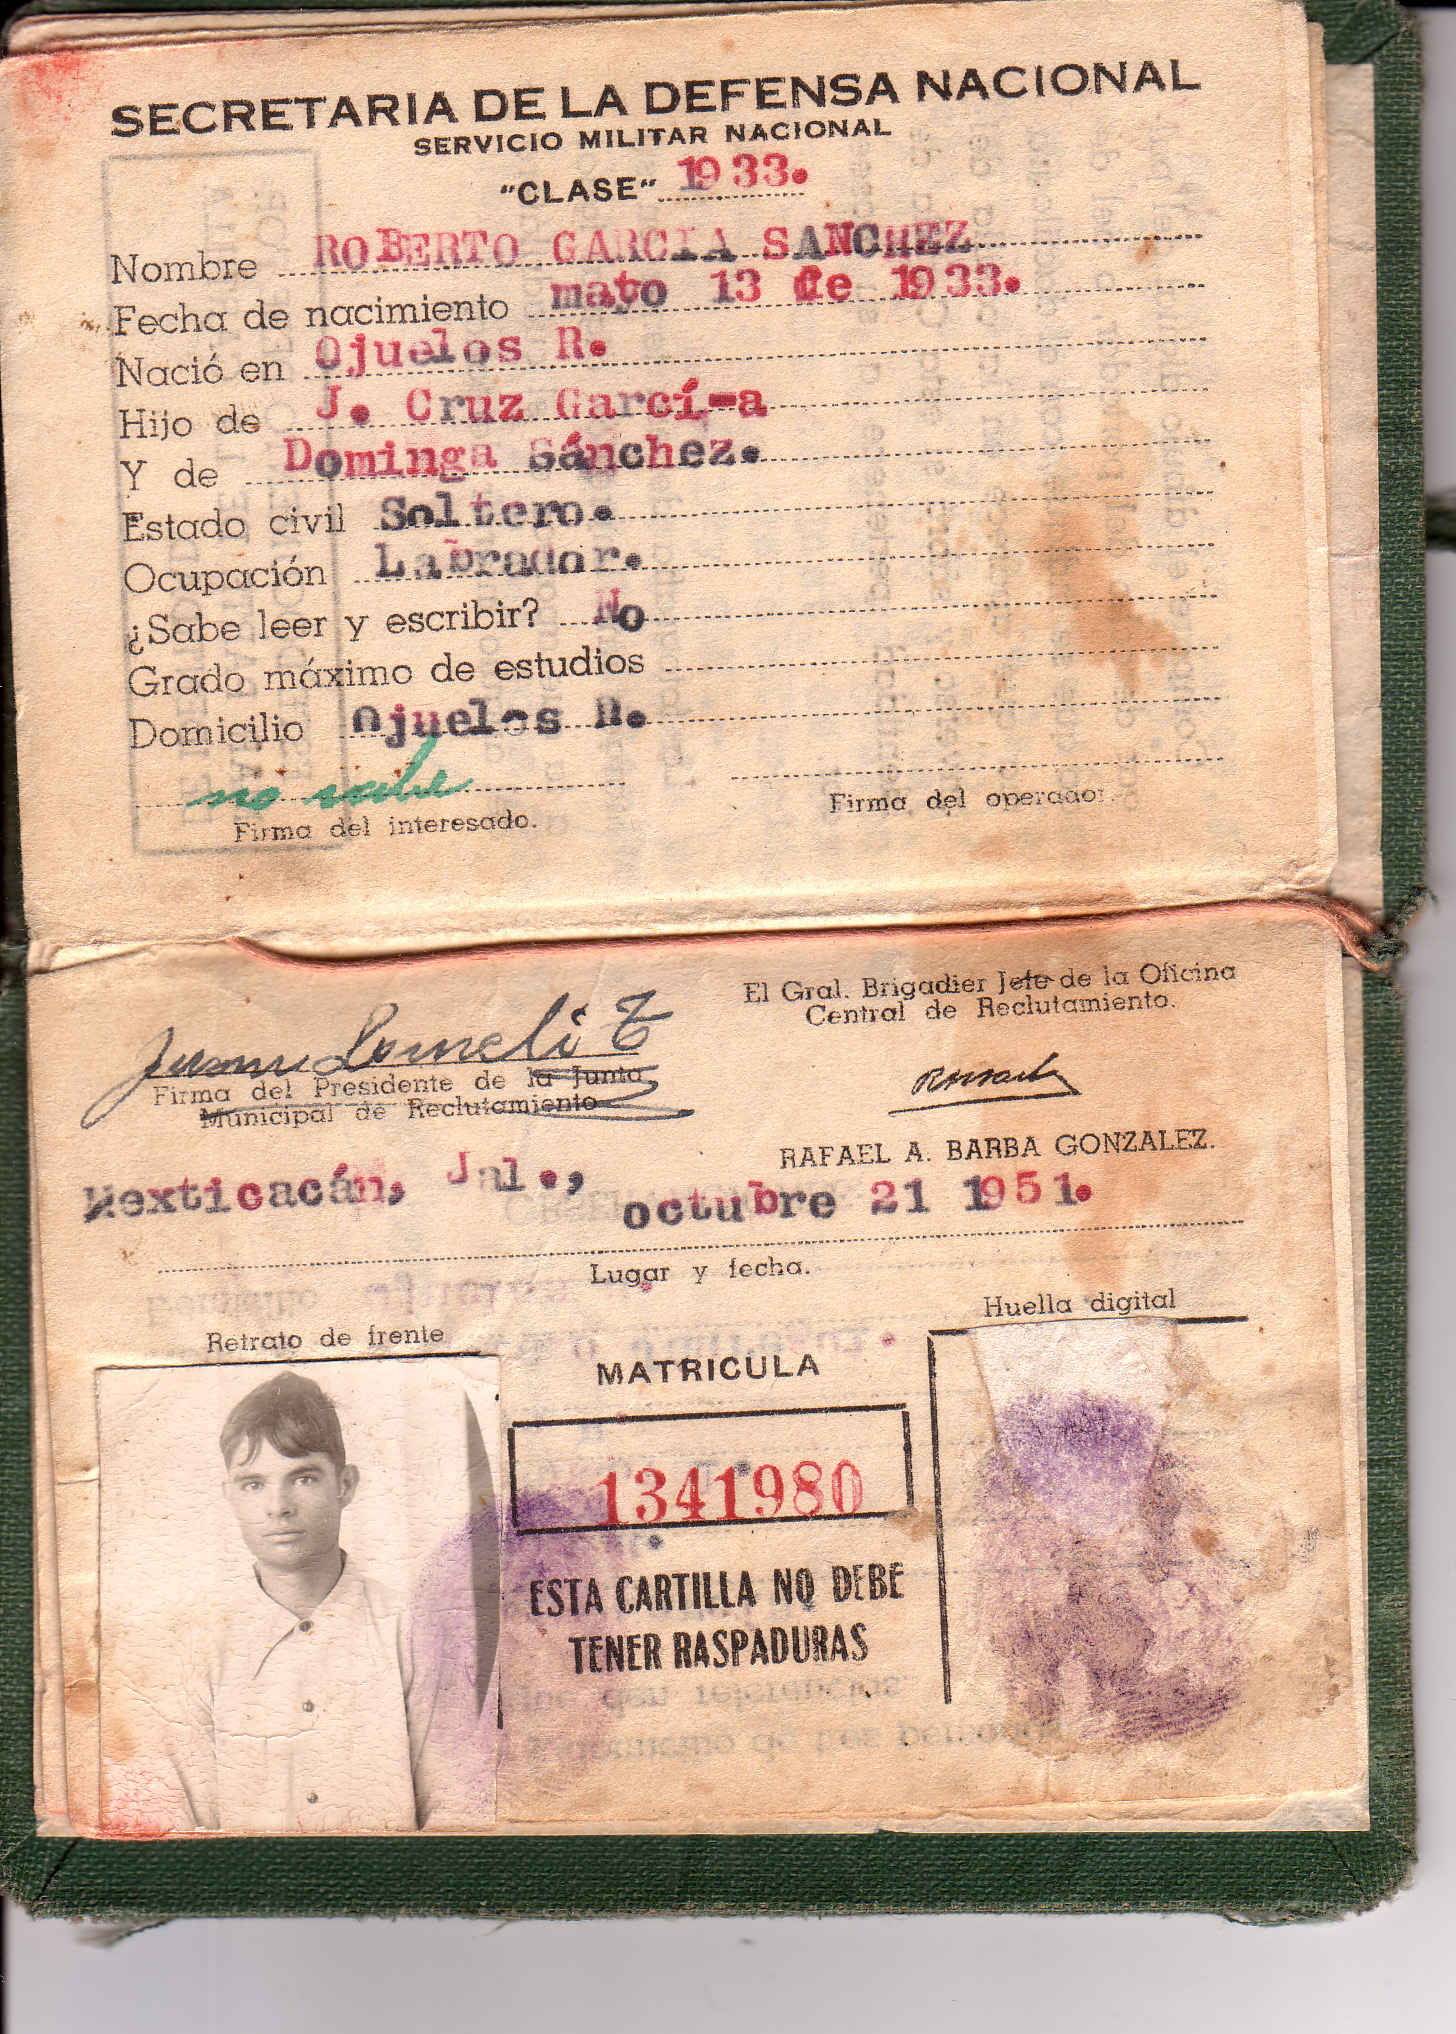 SECRETARIA DE LA DEFENSA NACIONAL
SERVICIO MILITAR NACIONAL
"CLASE" 1933.
Nombre ROBERTO GARCIA SANCHEZ
Fecha de nacimiento mayo 13 de 1933.
Nació en Ojuelos R.
Hijo de J. Cruz Garcí-a
Y de Dominga Sánchez.
Estado civil Soltero.
Ocupación Labrador.
¿Sabe leer y escribir? No
Grado máximo de estudios
Domicilio Ojuelos R.
no sabe
Firma del interesado.
Firma del operador.
Juan Lomeli T
Firma del Presidente de la Junta
Municipal de Reclutamiento
El Gral. Brigadier Jefe de la Oficina
Central de Reclutamiento.
RAFAEL A. BARBA GONZALEZ.
Mexticacán, Jal., octubre 21 1951.
Lugar y fecha.
Retrato de frente
MATRICULA
Huella digital
1341980
ESTA CARTILLA NO DEBE
TENER RASPADURAS